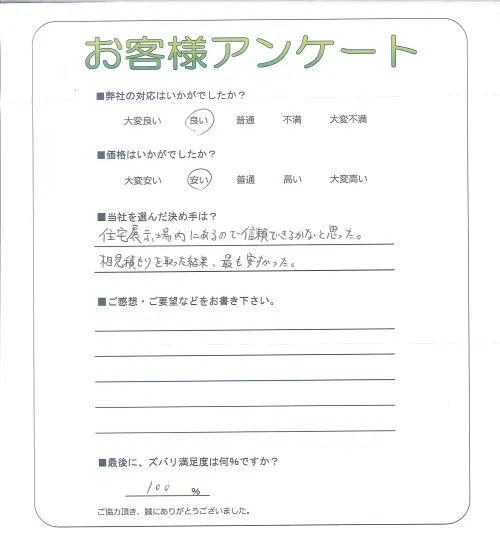 お客様アンケート
■弊社の対応はいかがでしたか？
大変良い 良い 普通 不満 大変不満
■価格はいかがでしたか？
大変安い 安い 普通 高い 大変高い
■当社を選んだ決め手は？
住宅展示場内にあるので信頼できるかなと思った。
相見積もりを取った結果、最も安かった。
■ご感想・ご要望などをお書き下さい。
■最後に、ズバリ満足度は何％ですか？
100 %
ご協力頂き、誠にありがとうございました。